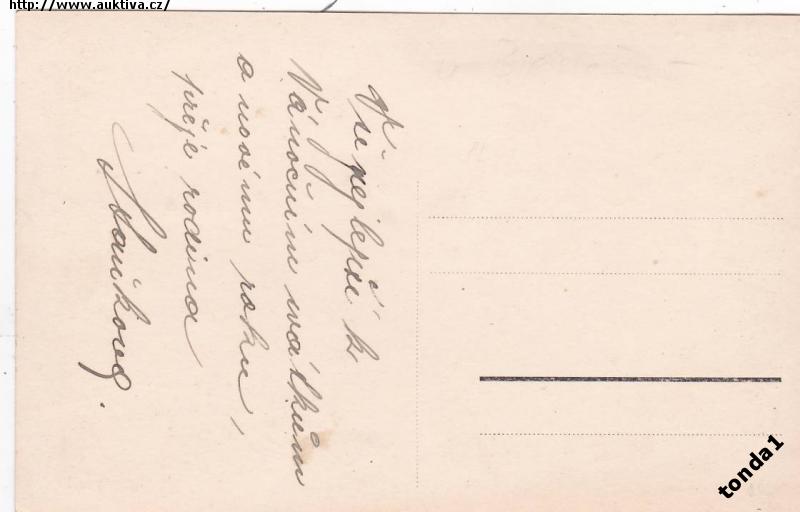 http://www.auktiva.cz/
Vše nejlepší k
Vánočním svátkům
a novému roku,
přeje rodina
tonda1